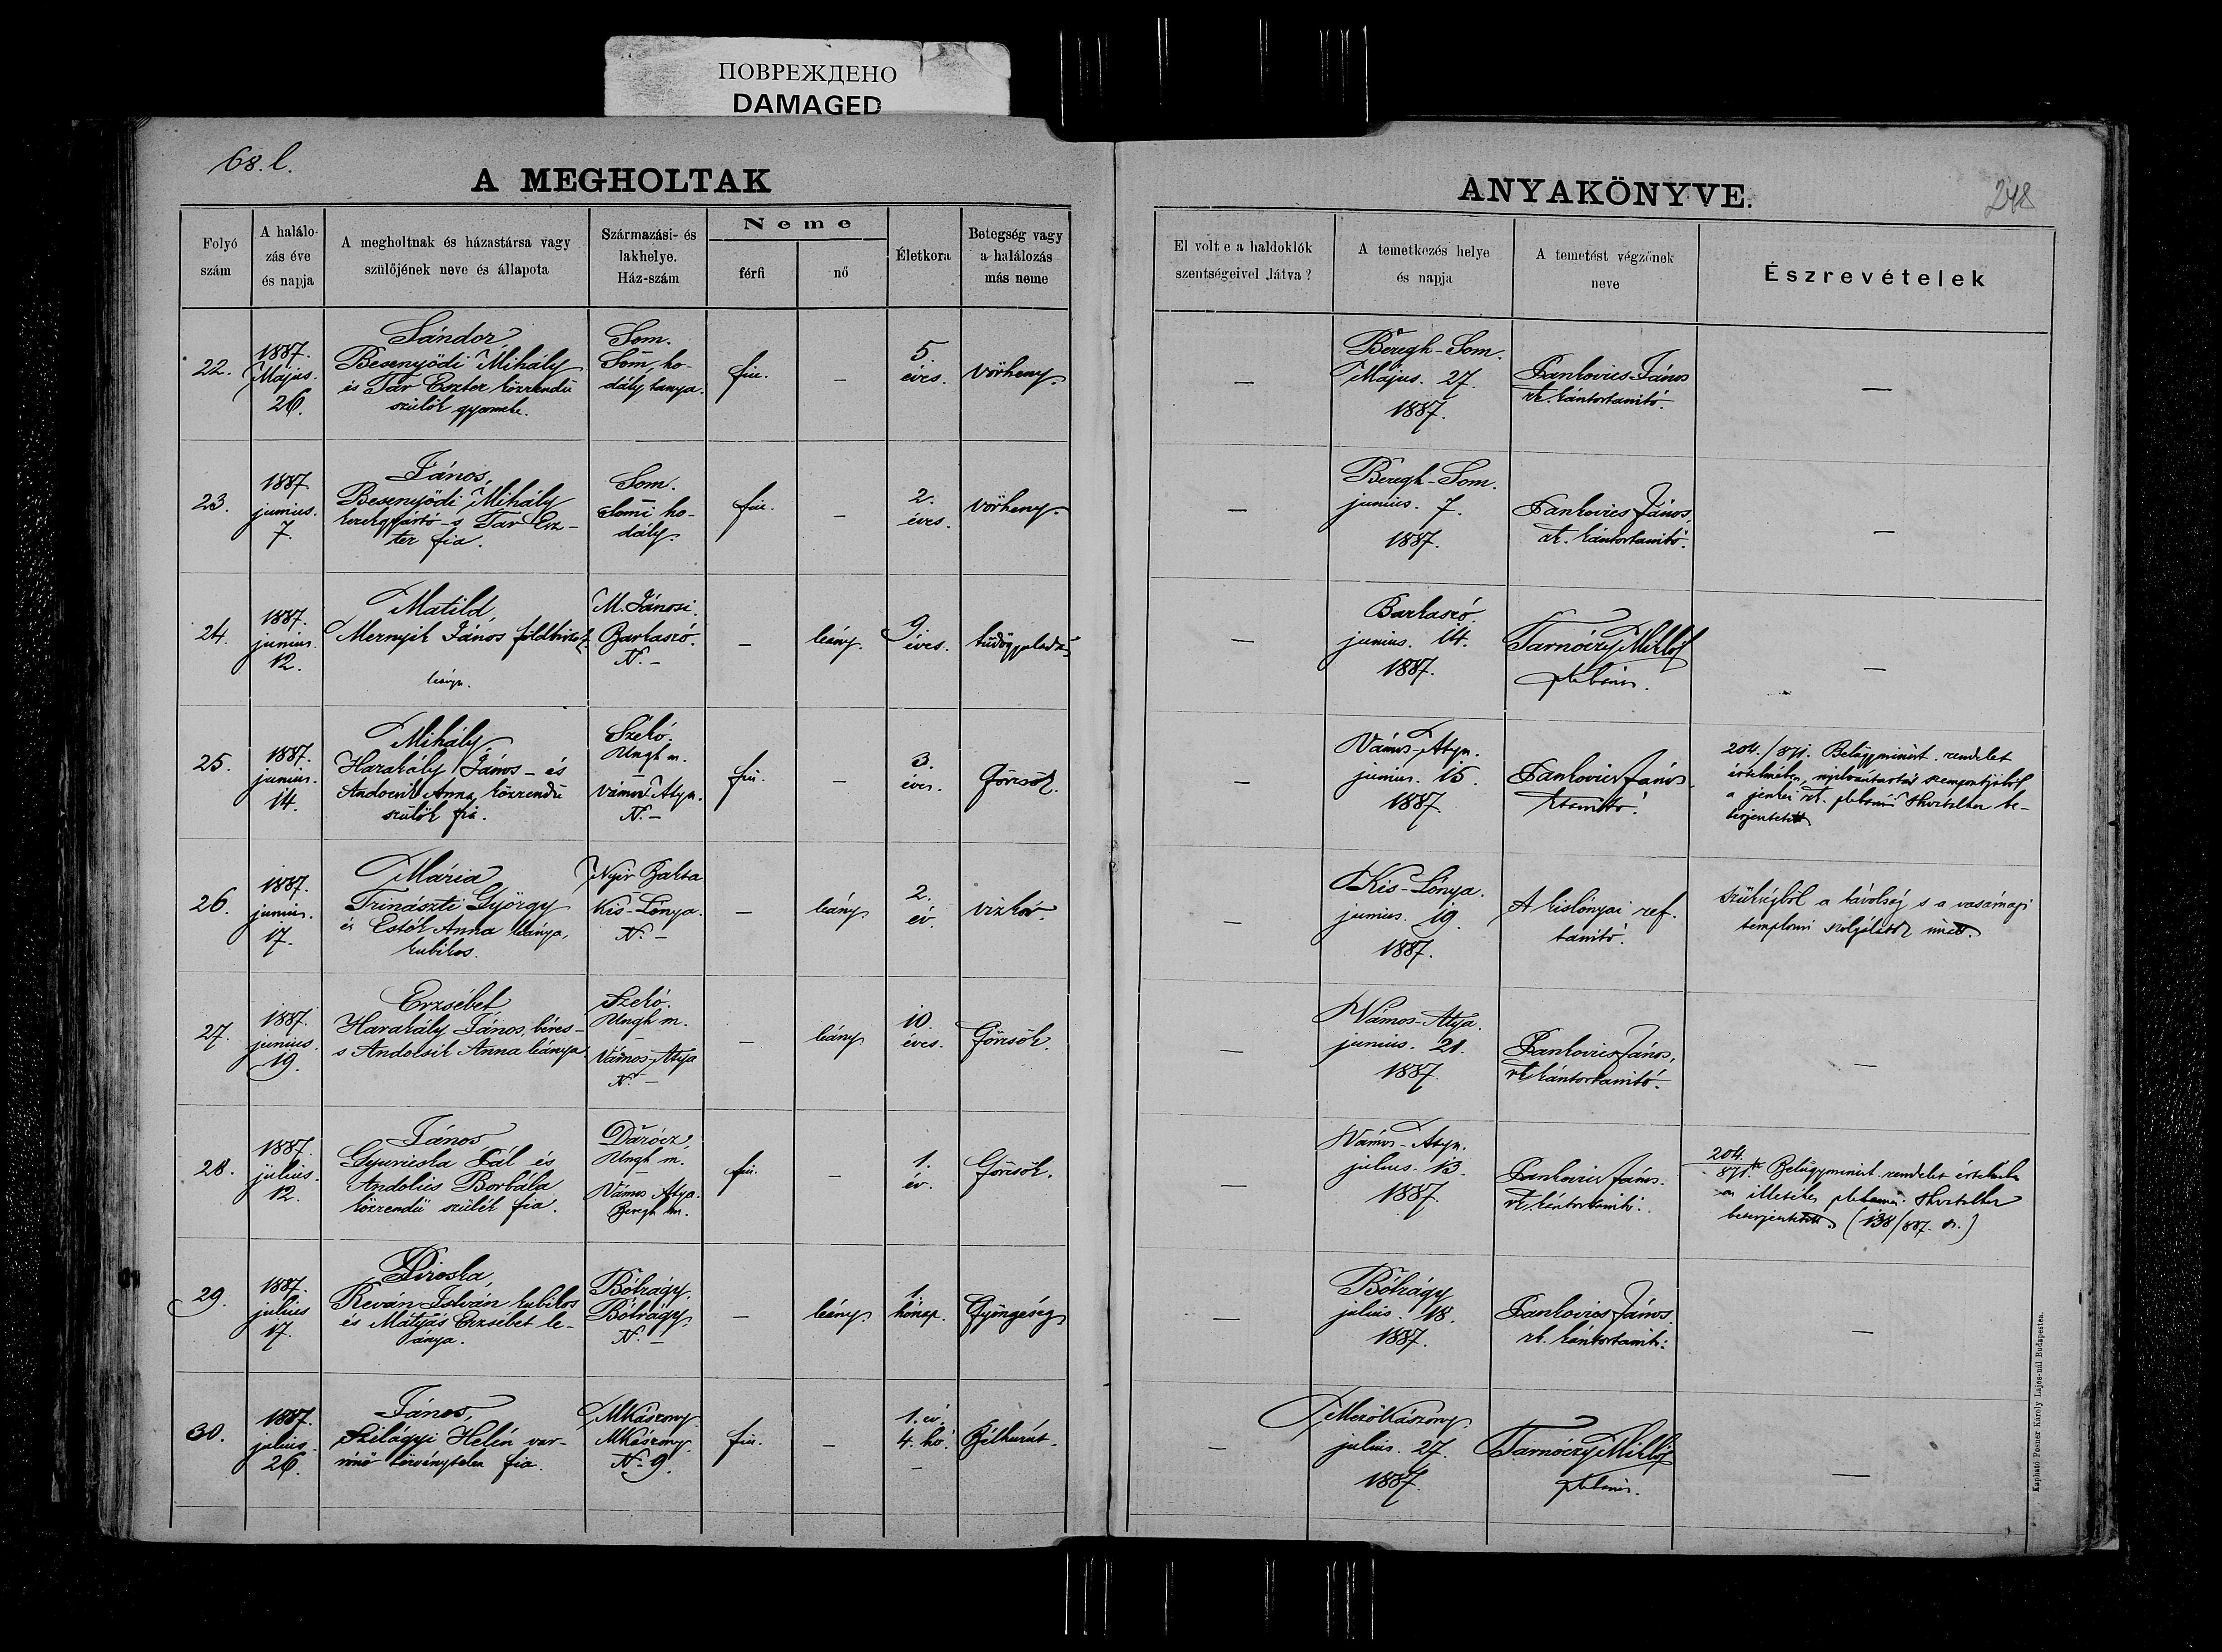 ПОВРЕЖДЕНО
DAMAGED
68. l.
A MEGHOLTAK
ANYAKÖNYVE.
248
Folyó
szám
A halálo-
zás éve
és napja
A megholtnak és házastársa vagy
szülőjének neve és állapota
Származási- és
lakhelye.
Ház-szám
Neme
férfi
nő
Életkora
Betegség vagy
a halálozás
más neme
El volt e a haldoklók
szentségeivel látva?
A temetkezés helye
és napja
A temetést végzőnek
neve
Észrevételek
22.
1887.
Május.
26.
Sándor,
Besenyődi Mihály
és Tar Eszter közrendü
szülők gyermeke.
Som.
Som, ho-
dály tanya.
fiu.
—
5.
éves.
vörheny.
—
Beregh-Som.
Május. 27.
1887.
Pankovics János
rk. kántortanító.
—
23.
1887.
junius.
7.
János,
Besenyődi Mihály
kerékgyártó - s Tar Esz-
ter fia.
Som.
Somi ho-
dály.
fiu.
—
2.
éves.
vörheny.
—
Beregh-Som.
junius. 7.
1887.
Pankovics János,
rk. kántortanító.
—
24.
1887.
junius.
12.
Matild,
Mernyik János földbirtok.
leánya.
M. Jánosi.
Barkaszó.
N. —
—
leány.
9.
éves.
—
Barkaszó.
junius. 14.
1887.
Tarnóczy Miklós
plébános.
—
25.
1887.
junius.
14.
Mihály,
Harakály János - és
Andocsik Anna közrendü
szülők fia.
Szekó.
Ungh m.
Vámos Atya.
N. —
fiu.
—
3.
éves.
Görcsök.
—
Vámos-Atya.
junius. 15.
1887.
Pankovics János.
ktanító.
204./871. Belügyminist. rendelet
értelmében, nyilvántartás szempontjából
a jenkei rk. plébánia hivatalhoz be-
terjesztetett
26.
1887.
junius.
17.
Mária
Trinaszti György
és Estók Anna leánya,
kubikos.
Nyir Bakta
Kis-Lónya.
N. —
—
leány
2.
év.
vizkór.
—
Kis-Lónya.
junius. 19.
1887.
A kislónyai ref.
tanító.
szükségből a távolság s a vasárnapi
templomi szolgálatok miatt.
27.
1887.
junius.
19.
Erzsébet
Harakály János, béres -
s Andocsik Anna leánya
Szekó.
Ungh m.
Vámos-Atya
N. —
—
leány
10.
éves.
Görcsök.
—
Vámos-Atya.
junius. 21.
1887.
Pankovics János,
rk kántortanító.
—
28.
1887.
julius.
12.
János
Gyuricska Pál és
Andolics Borbála
közrendü szülők fia.
Darócz,
Ungh m.
Vámos Atya.
Beregh m.
fiu.
—
1.
év.
Görcsök.
—
Vámos-Atya.
julius. 13.
1887.
Pankovics János.
rk kántortanító.
204.
871 Belügyminist. rendelet értelmében
az illetékes plébániai hivatalhoz
beterjesztetett. (138/887. sz.)
29.
1887.
julius
17.
Piroska,
Reván István kubikos
és Mátyás Erzsébet le-
ánya.
Bótrágy.
Bótrágy.
N. —
—
leány.
1.
hónap.
Gyöngeség
—
Bótrágy
julius. 18.
1887.
Pankovics János.
rk. kántortanító.
—
30.
1887.
julius.
26.
János,
Szilágyi Helén var-
rónő törvénytelen fia.
MKászony.
MKászony.
N. 9.
fiu.
—
1. év.
4. hó.
—
Bélhurut.
—
Mezőkászony.
julius. 27.
1887.
Tarnóczy Miklós
plébános.
—
Kapható Posner Károly Lajos-nál Budapesten.